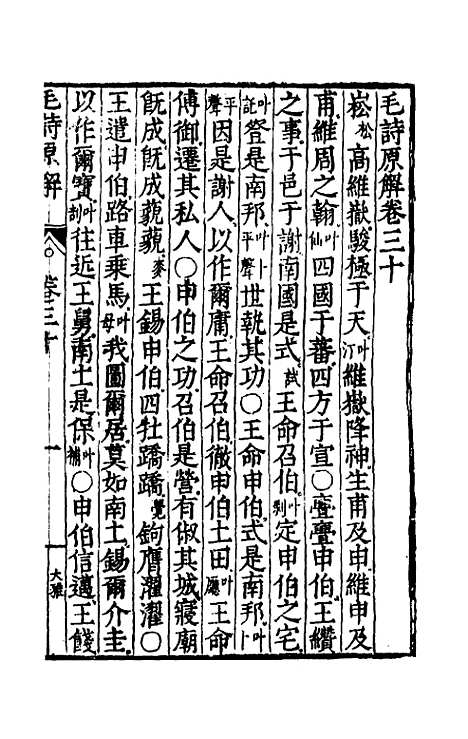 毛詩原解卷三十
崧松高維嶽駿極于天叶汀維嶽降神生甫及申維申及
甫維周之翰叶仙四國于蕃四方于宣○亹亹申伯王纘
之事于邑于謝南國是式試王命召伯叶剝定申伯之宅
叶託登是南邦叶平聲世執其功○王命申伯式是南邦叶平聲因是謝人以作爾庸王命召伯徹申伯土田叶廳王命
傅御遷其私人○申伯之功召伯是營有俶其城寢廟
旣成旣成藐藐王錫申伯四牡蹻蹻覺鉤膺濯濯○
王遣申伯路車乘馬叶母我圖爾居莫如南土錫爾介圭
以作爾寶叶剖往近王舅南土是保叶補○申伯信邁王餞
毛詩原解
卷三十
一
大雅